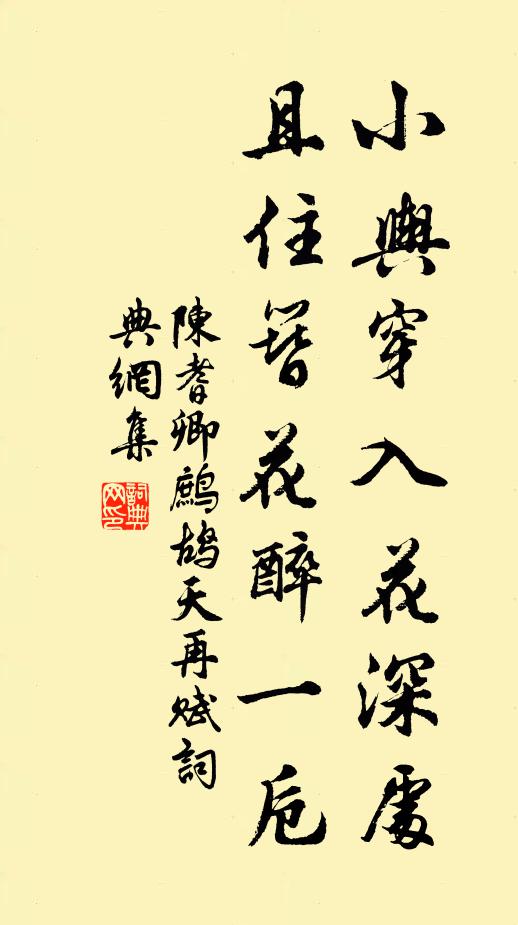 小輿穿入花深處
且住簪花醉一卮
陳耆卿鷓鴣天再賦詞
典網集
詞典
网印